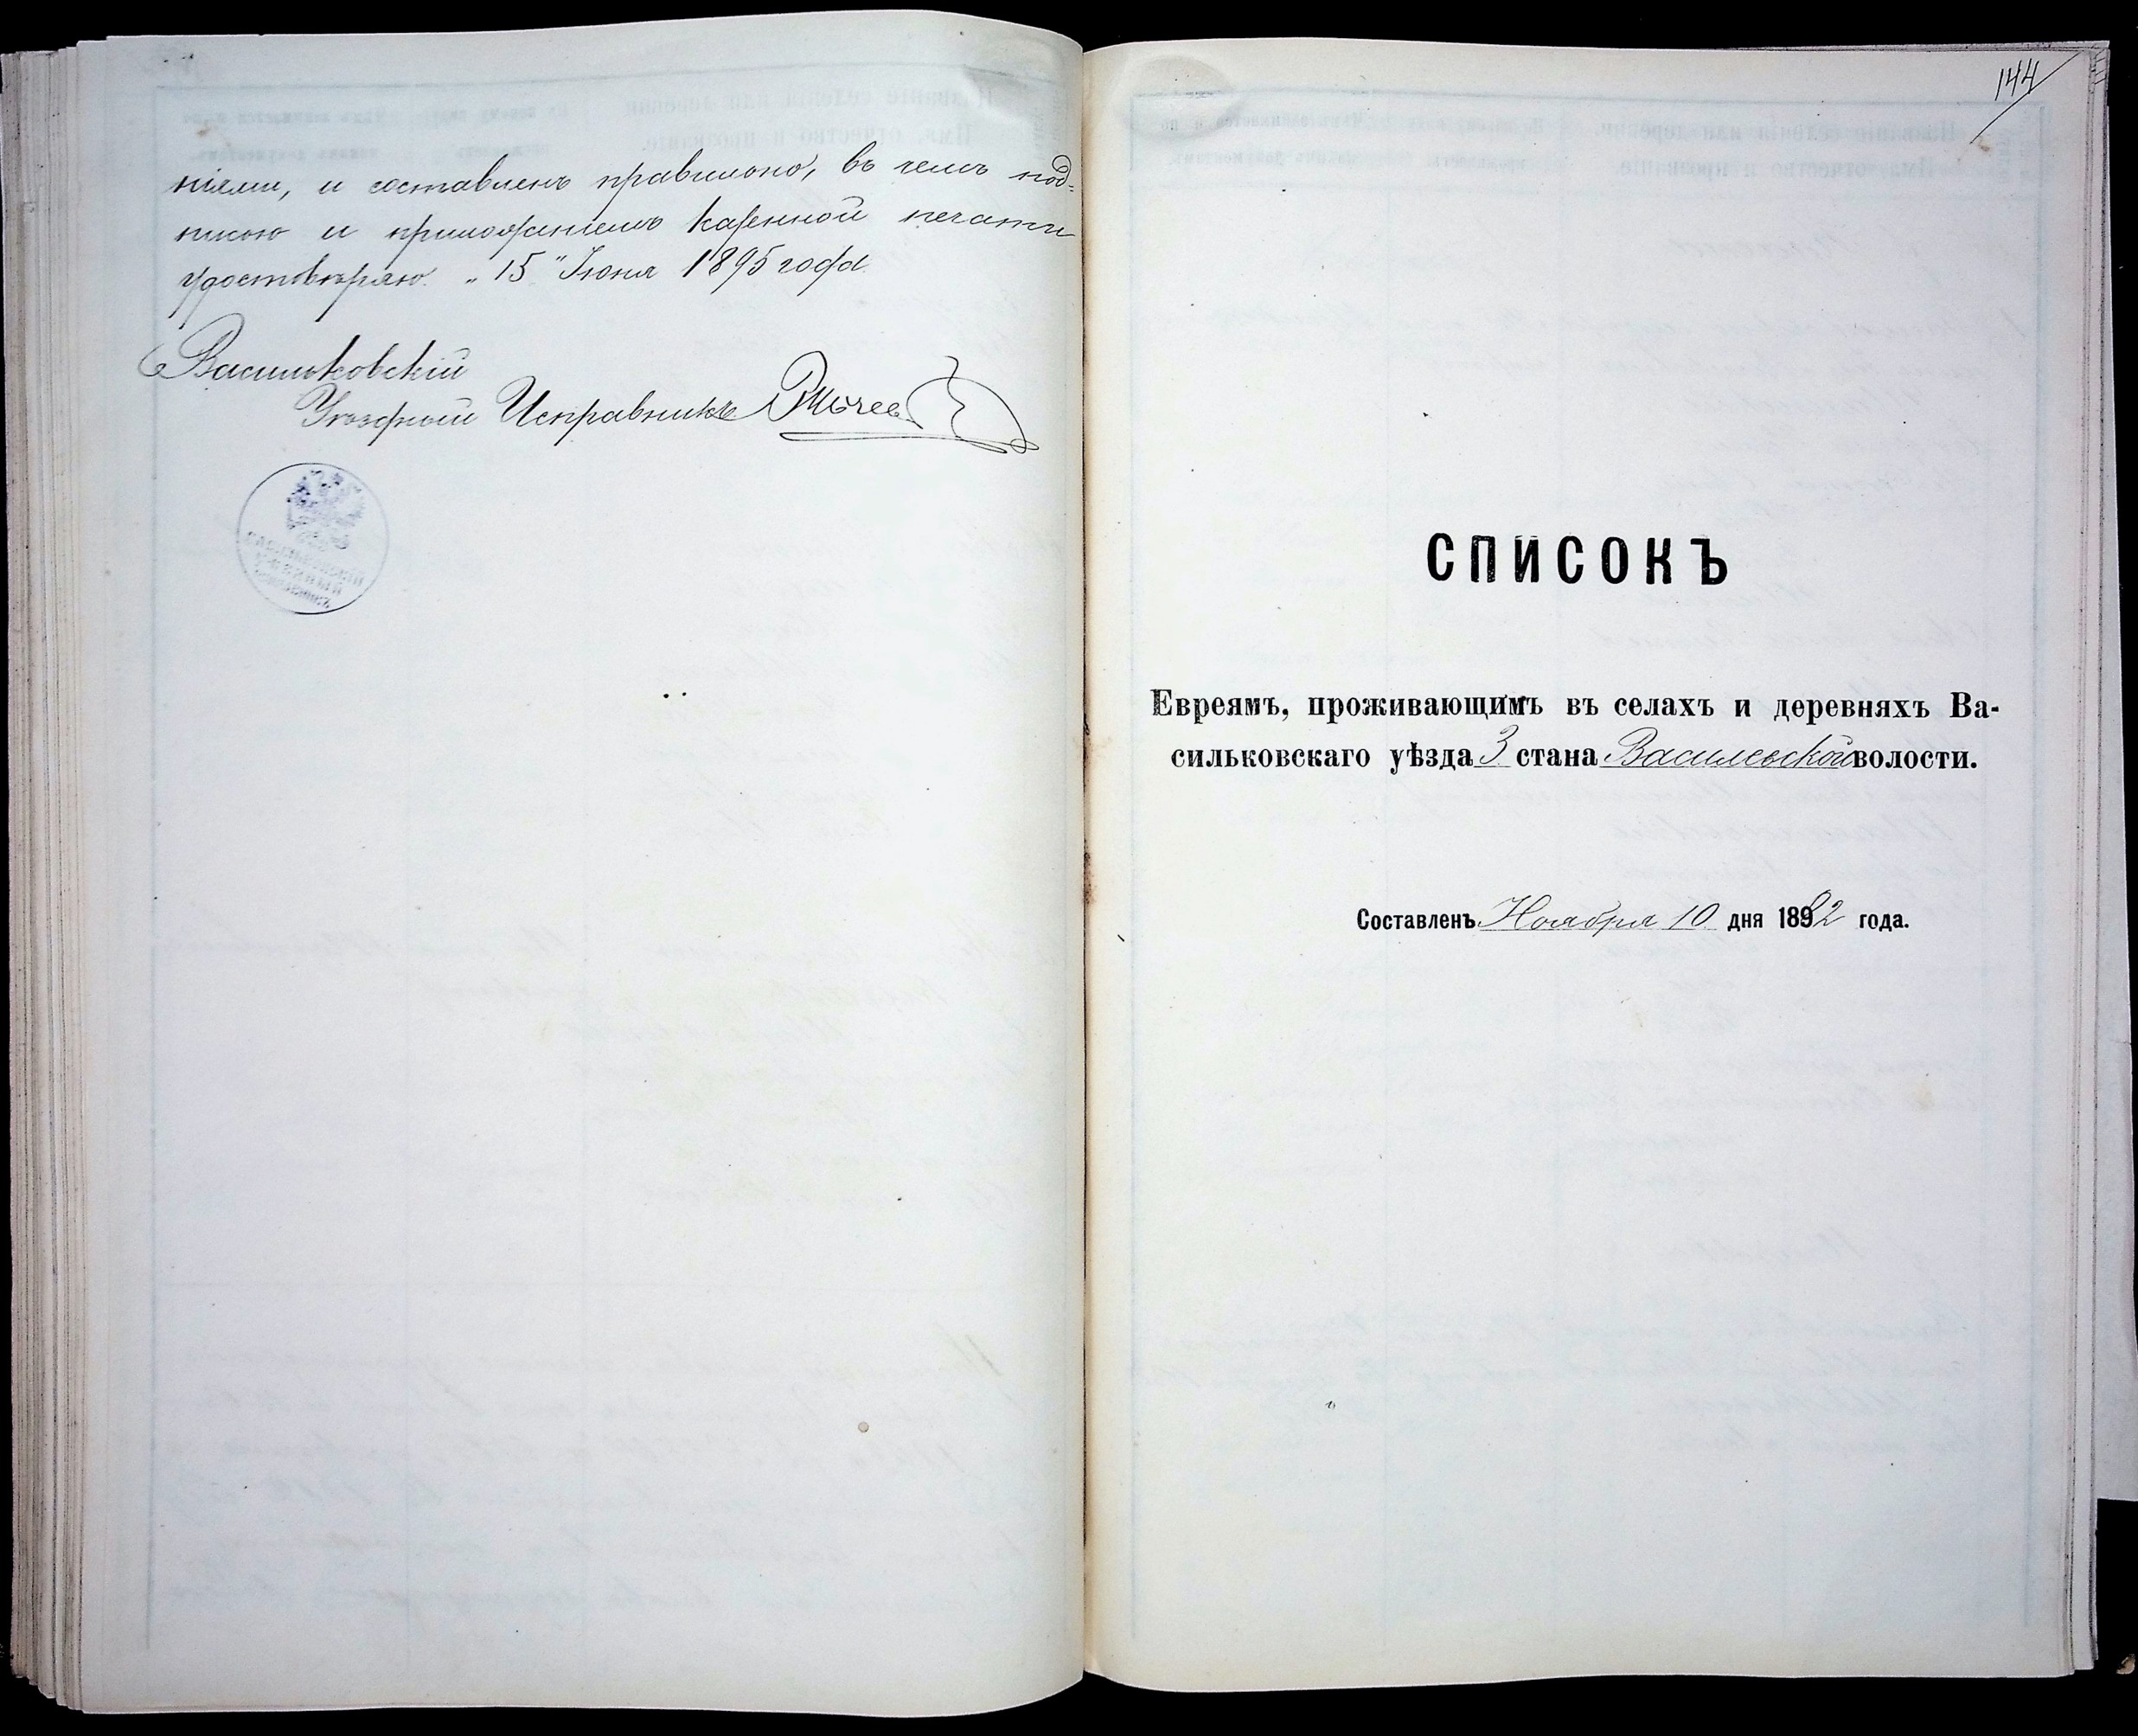 ніями, и составленъ правильно, въ чемъ под-
писью и приложеніемъ казенной печати
удостовѣряю. „15" Іюня 1895 года.
Васильковскій
Уѣздный Исправникъ
144
СПИСОКЪ
Евреямъ, проживающимъ въ селахъ и деревняхъ Ва-
сильковскаго уѣзда 3 стана Васильевской волости.
Составленъ Ноября 10 дня 1892 года.